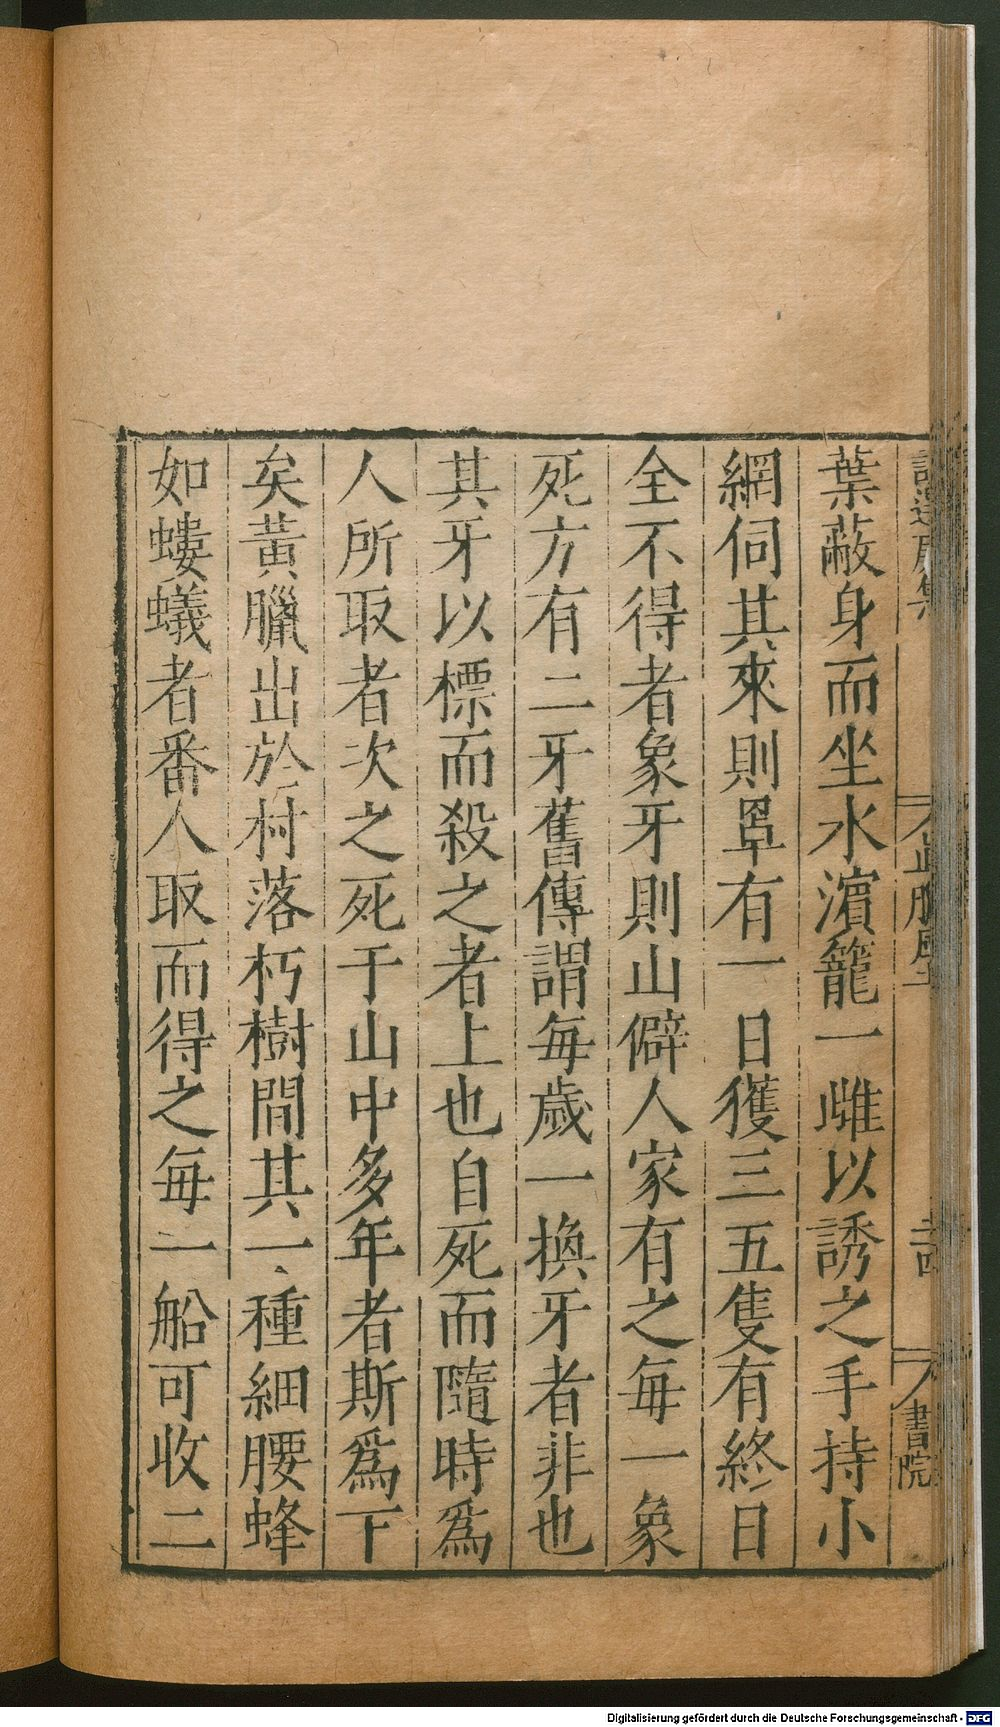 葉蔽身而坐水濵籠一雌以誘之手持小
網伺其來則罩有一日獲三五隻有終日
全不得者象牙則山僻人家有之每一象
死方有二牙舊傳謂每歲一換牙者非也
其牙以標而殺之者上也自死而隨時爲
人所取者次之死于山中多年者斯爲下
矣黃臘出於村落朽樹間其一種細腰蜂
如螻蟻者番人取而得之每一船可收二
書院
Digitalisierung gefördert durch die Deutsche Forschungsgemeinschaft - DFG